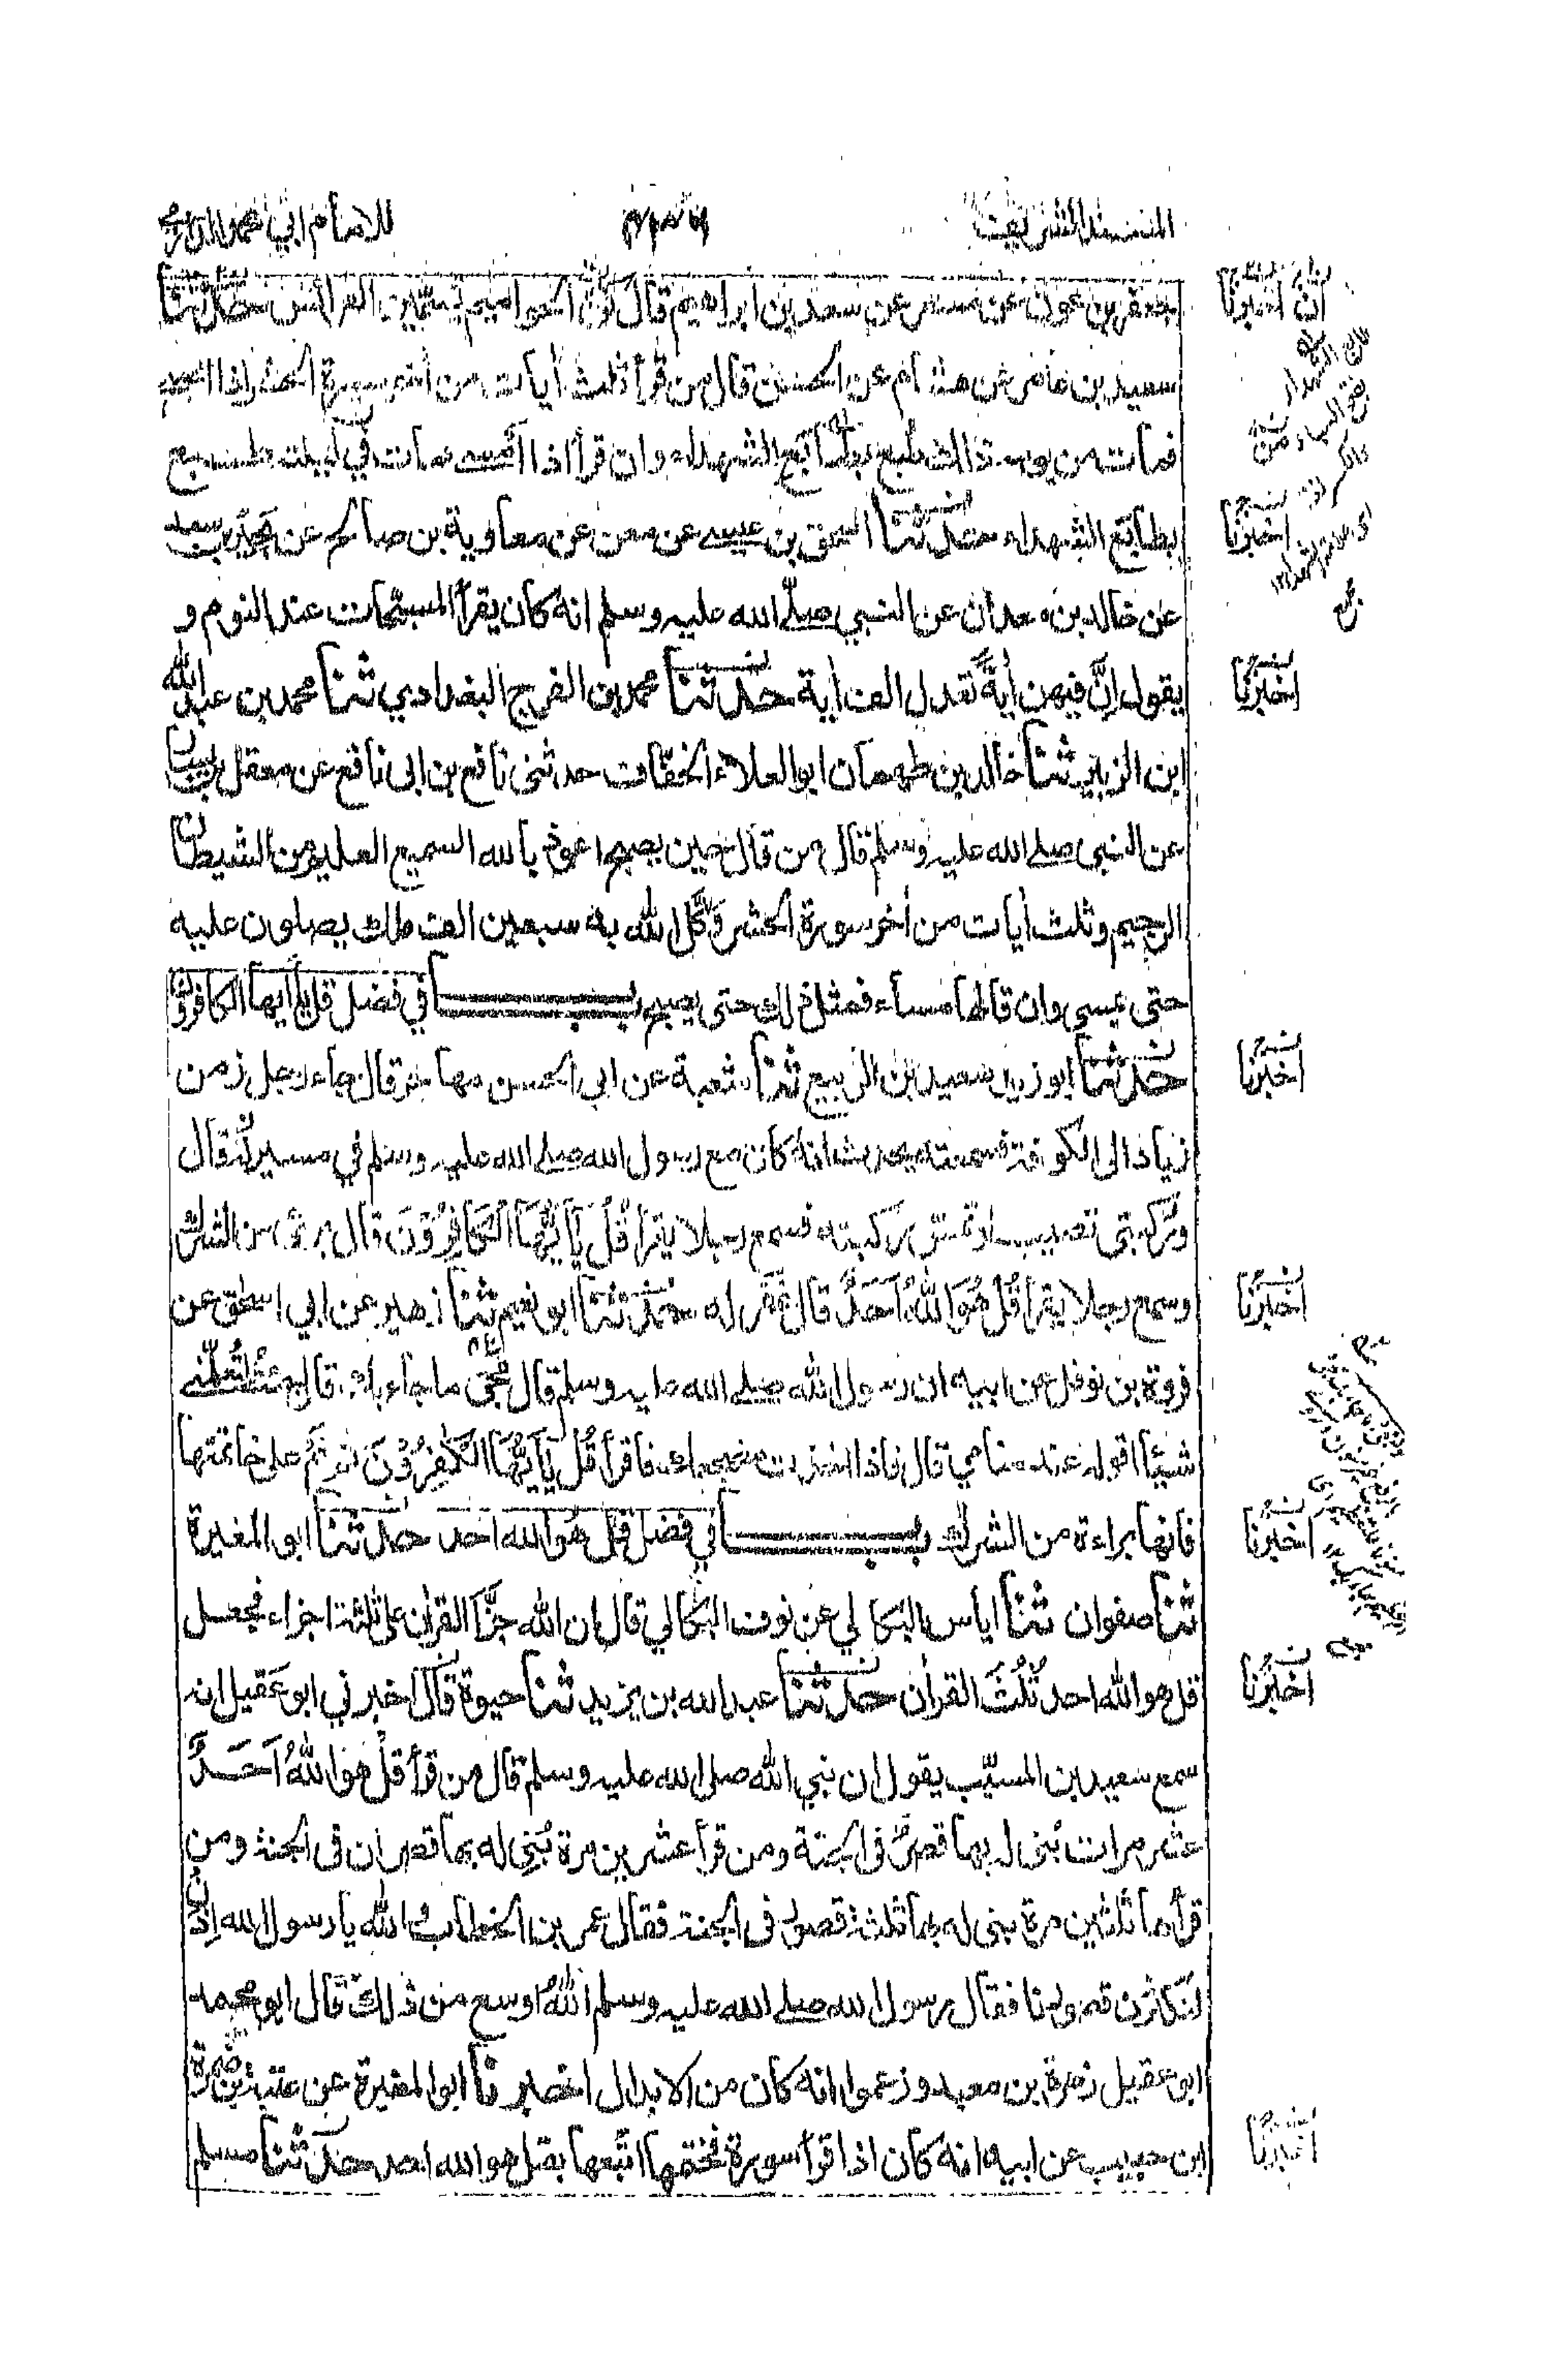 المسند الشريف
للامام ابي محمد الدارمي
جعفر بن عون عن مسعر عن سعد بن ابراهيم قال كُنَّ الحواميم يُسَمَّين العرائس حدثنا
سعيد بن عامر عن هشام عن الحسن قال من قرأ ثلث أيات من أخر سورة الحشر اذا اصبح
فمات من يومه ذلك طبع بطابَع الشهداء وان قرأ اذا امسے فمات في ليلته طبع
بطابَع الشهداء حدثنا اسحق بن عيسے عن معن عن معاوية بن صالح عن بَحِير بن سعد
عن خالد بن معدان عن النبي صلے الله عليه وسلم انه كان يقرأ المسبّحات عند النوم و
يقول اِنَّ فيهن أيةً تعدل الف أية حدّثنا محمد بن الفرج البغدادي ثنا محمد بن عبد الله
ابن الزبير ثنا خالد بن طهمان ابو العلاء الخفّاف حدثنى نافع بن ابى نافع عن معقل بن يسار
عن النبي صلے الله عليه وسلم قال من قال حين يصبح اعوذ بالله السميع العليم من الشيطان
الرجيم وثلث أيات من أخر سورة الحشر وَكَّل الله به سبعين الف ملك يصلون عليه
حتى يمسي وان قالها مساء فمثل ذلك حتى يصبح باب في فضل قل يا ايها الكافرون
حدثنا ابو زيد سعيد بن الربيع ثنا شعبة عن ابي الحسن مهاجر قال جاء رجل زمن
زياد الى الكوفة فسمعته يحدث انه كان مع رسول الله صلے الله عليه وسلم في مسير له قال
وركبتى تصيب او تمس ركبته فسمع رجلا يقرأ قُلْ يَآ اَيُّهَا الْكَافِرُوْنَ قال برئ من الشرك
وسمع رجلا يقرأ قُلْ هُوَ اللهُ اَحَدٌ قال غُفِرَ له حدثنا ابو نعيم ثنا زهير عن ابي اسحٰق عن
فروة بن نوفل عن ابيه ان رسول الله صلے الله عليه وسلم قال مجئ ما جاء بك قال جئت لتُعلّمنے
شيئا اقوله عند منامي قال فاذا اخذت مضجعك فاقرأ قُلْ يَآ اَيُّهَا الْكٰفِرُوْنَ ثم نَم على خاتمتها
فانها براءة من الشرك باب في فضل قل هو الله احد حدثنا ابو المغيرة
ثنا صفوان ثنا اياس البكالي عن نوف البكالي قال ان الله جزّأ القرأن على ثلثة اجزاء فجعل
قل هو الله احد ثُلُثَ القرأن حدثنا عبد الله بن يزيد ثنا حيوة قال اخبرني ابو عَقيل انه
سمع سعيد بن المسيّب يقول ان نبي الله صلى الله عليه وسلم قال من قرأ قل هو اللهُ اَحَدٌ
عشر مرات بُنى له بها قصرٌ فى الجنة ومن قرأ عشرين مرة بُنِي له بها قصران فى الجنة ومن
قرأها ثلثين مرة بنى له بها ثلثة قصور فى الجنة فقال عمر بن الخطاب و الله يا رسول الله اِذن
لنُكثرن قصورنا فقال رسول الله صلے الله عليه وسلم اللهُ اوسع من ذلك قال ابو محمد
ابو عقيل زهرة بن معبد وزعموا انه كان من الابدال اخبرنا ابو المغيرة عن عتبة بن ضمرة
ابن حبيب عن ابيه انه كان اذا قرأ سورة فختمها اتبعها بقل هو الله احد حدّثنا مسلم
أن اخبرنا
اخبرنا
اخبرنا
اخبرنا
اخبرنا
اخبرنا
اخبرنا
اخبرنا